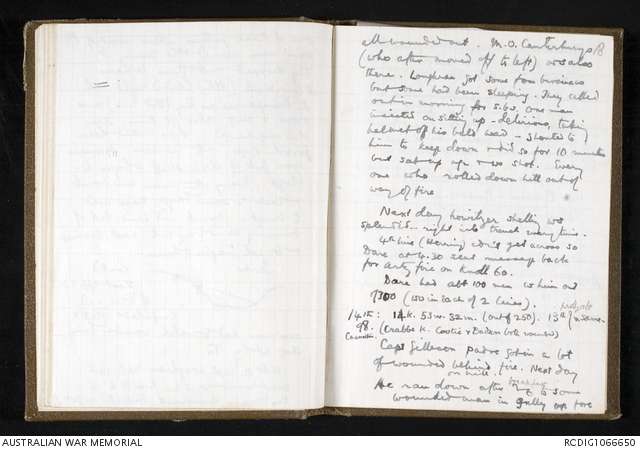 all wounded out. M.O. Canterburys 18
(who after moved off to left) was also
there. Loughran got some from business
but some had been sleeping. They called
out in morning for s.bs. One man
insisted on sitting up - delirious, taking
helmet off his bald head - shouted to
him to keep down & did so for 10 minutes
but sat up agn & was shot. Every
one who rolled down hill out of
way of fire
Next day howitzer shelling was
splendid - right into trench every time.
4th line (Herring) cdn't get across so
Dare at 4.30 sent message back
for arty fire on Knoll 60.
Dare had abt 100 men w him out
of 300 (150 in each of 2 lines).
14th: 14 k. 53 w. 32 m. (out of 250). 13th
98.
(Crabbe k. Cootie & both wounded)
Capt Gilleson padre got in a lot
of wounded behind fire. Next day
on hill
He ran down after to some
wounded man in gully up fore
AUSTRALIAN WAR MEMORIAL
RCDIG1066650